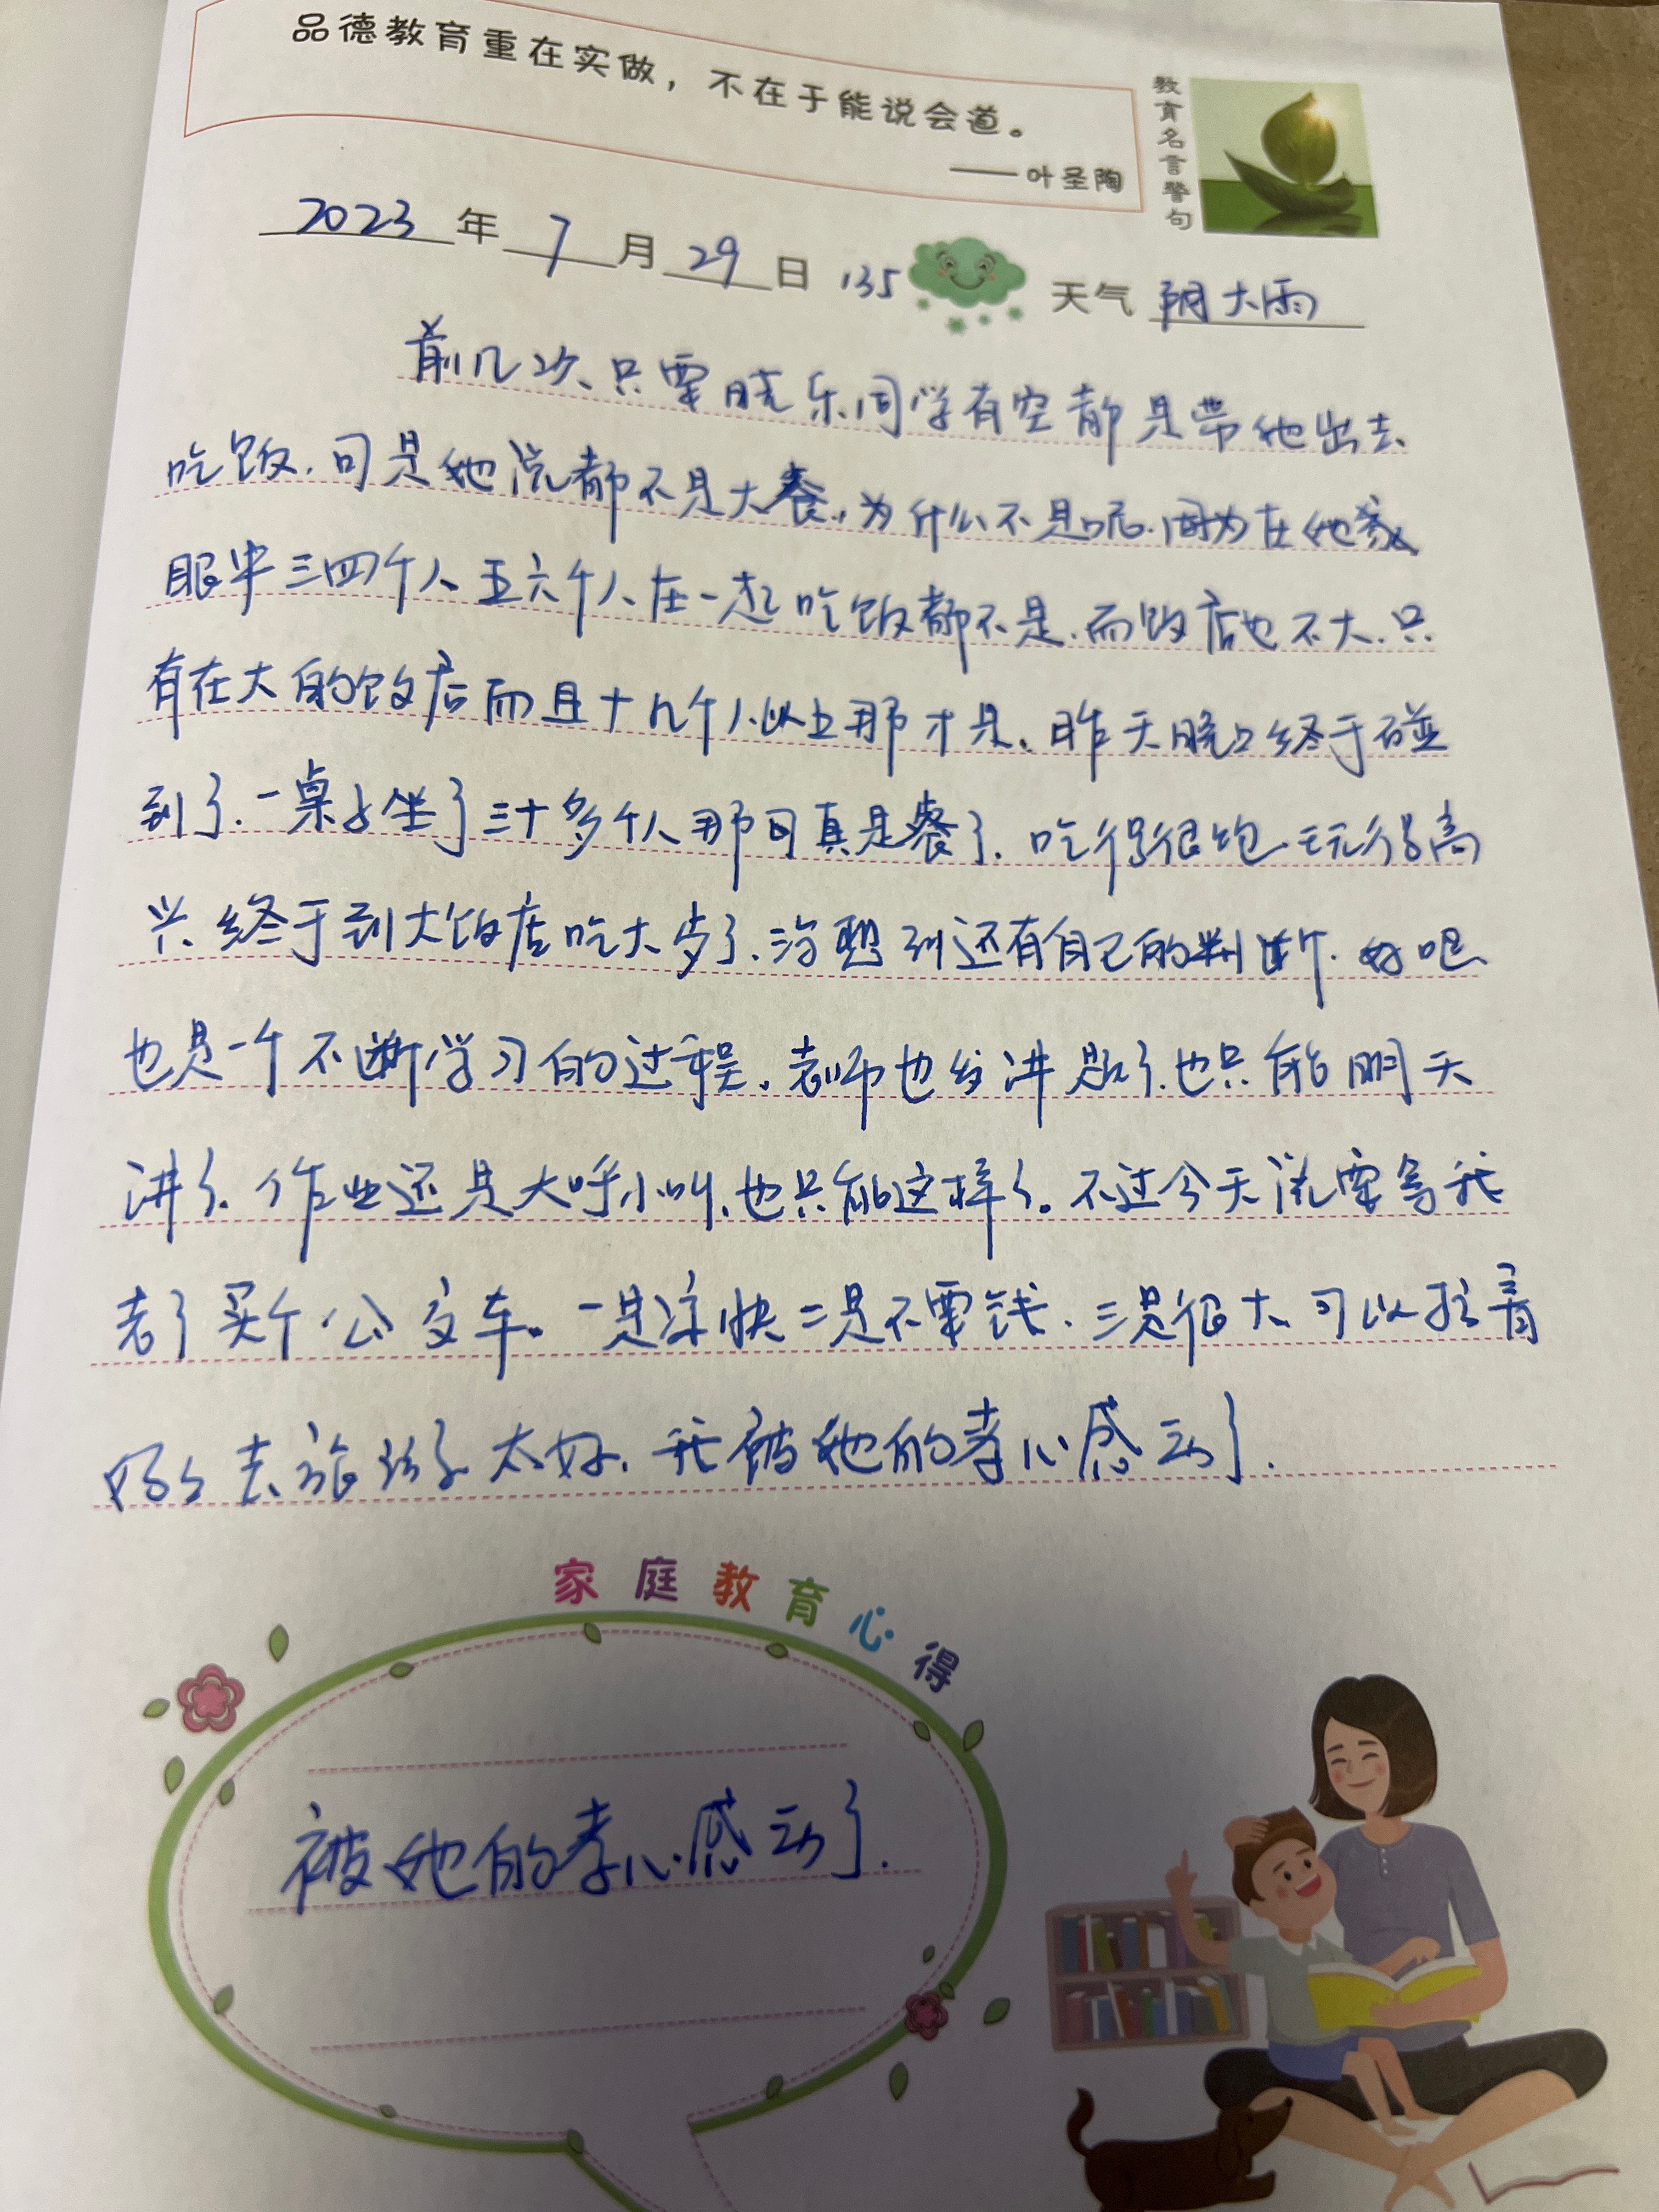 品德教育重在实做，不在于能说会道。
——叶圣陶
教育名言警句
2023年7月29日 135 天气 阴大雨
前几次、只要晓乐同学有空都是带她出去
吃饭.可是她说都不是大餐,为什么不是呢.因为在她
眼中三四个人、五六个人在一起吃饭都不是.而饭店也不大.只
有在大的饭店而且十几个人以上那才是、昨天晚上终于碰
到了.一桌子坐了三十多个人那可真是餐了.吃得很饱.玩得高
兴、终于到大饭店吃大了.没想到还有自己的判断.好吧
也是一个不断学习的过程、老师也给讲题了.也只能明天
讲了.作业还是大呼小叫.也只能这样了。不过今天说要等我
老了买个公交车。一是凉快二是不要钱.三是很大可以拉着
好多去旅游了太好.我被她的孝心感动了.
家庭教育心得
被她的孝心感动了.